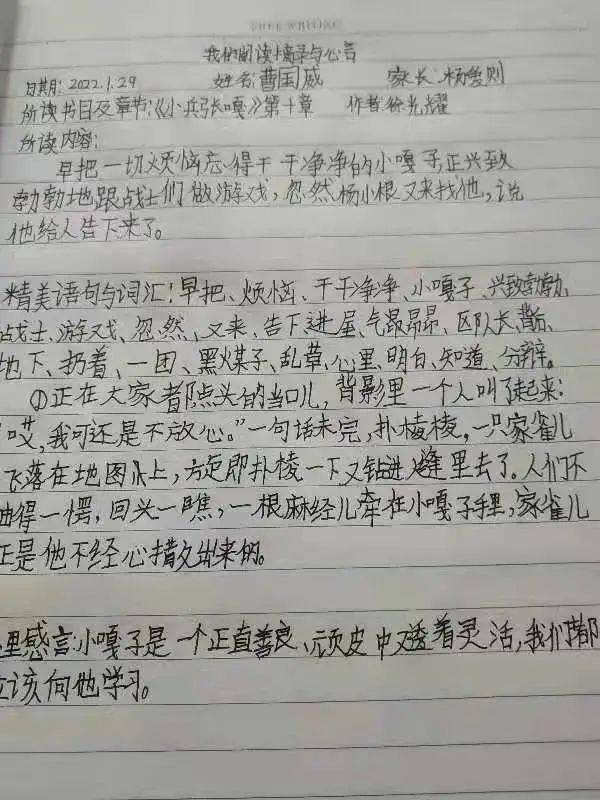 FREE WRITING
我的阅读摘录与心言
日期：2022.1.29 姓名：曹国威 家长：杨
所读书目及章节：《小兵张嘎》第十章 作者：徐光耀
所读内容：
早把一切烦恼忘得干干净净的小嘎子，正兴致
勃勃地跟战士们做游戏，忽然杨小根又来找他，说
他给人告下来了。
精美语句与词汇：早把、烦恼、干干净净、小嘎子、兴致勃勃、
战士、游戏、忽然、又来、告下进屋、气昂昂、区队长、背后、
地下、扔着、一团、黑煤子、乱草、心里、明白、知道、分辩。
①正在大家都点头的当口儿，背影里一个人叫了起来：
“哎，我可还是不放心。”一句话未完，扑棱棱，一只家雀儿
飞落在地图上，方定即扑棱一下又钻进缝里去了。人们不
由得一愣，回头一瞧，一根麻经儿牵在小嘎子手里，家雀儿
正是他不经心出来的。
里感言：小嘎子是一个正直善良、顽皮中又透着灵活，我们都
应该向他学习。